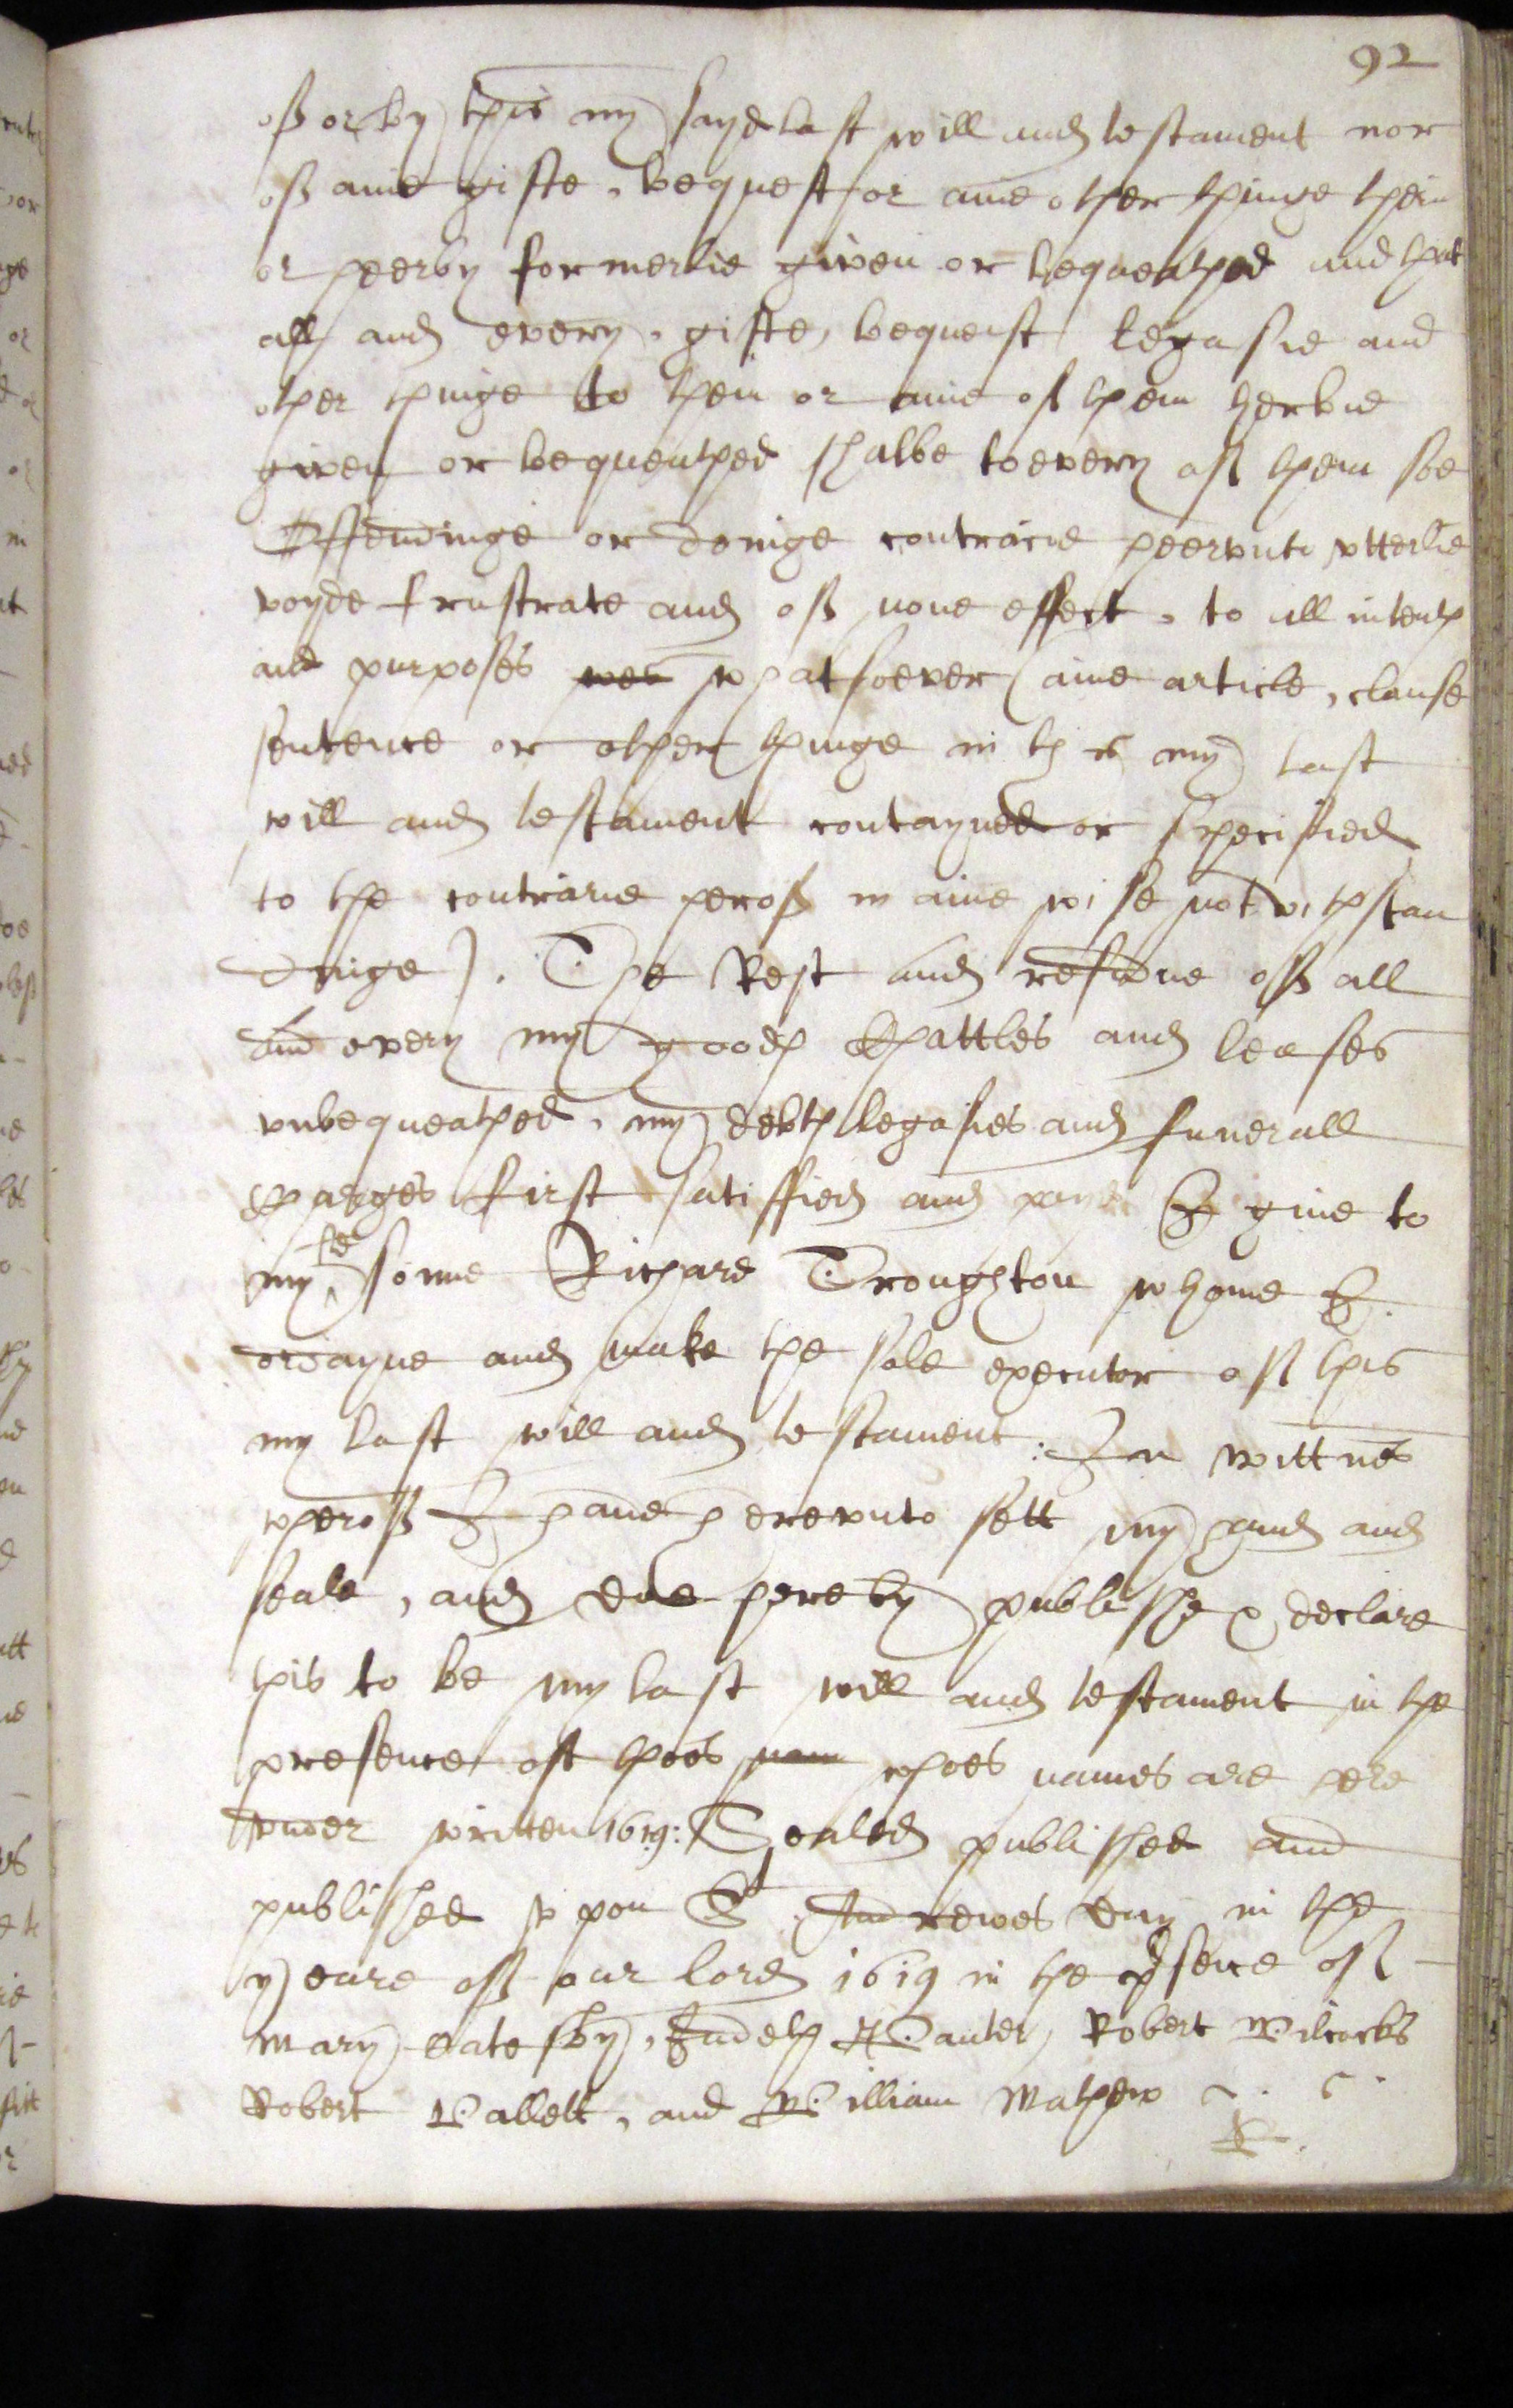 92
off or by this my sayd last will and testament nor
off anie gifte, bequest or anie other thinge them
or heerby formerlie given or bequeathed and that
all and every, gifte, bequest legasie and
other thinge to them or anie of them herbie
given or bequeathed shalbe to every off them soe
Offendinge or doeinge contrarie heervnto vtterlie
voyde frustrate and off none effect, to all intents
and purposes whatsoever (anie article, clause
sentence or other thinge in this my last
will and testament contayned or specified
to the contrarie herof in anie wise notwithstan
dinge). The Rest and residue off all
and every my goods Chattles and leases
vnbequeathed, my debts legasies and funerall
Charges first satisffied and payd I give to
my sd sonne Richard Troughton whome I
ordayne and make the sole executor off this
my last will and testament: In wittnes
wheroff I have herevnto sett my hand and
seale, and doe hereby publishe & declare
this to be my last will and testament in the
presence off thoes nam whoes names are here
vnder written 1619: Sealed published and
published vpon St Andrewes day in the
yeare off our lord 1619 in the psence off
Mary Catesby, Judeth Wanter, Robert Wilcocks
Robert Vallett, and William Mathew